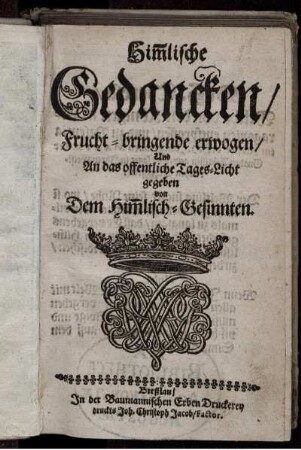 Him̃lische
Gedancken/
Frucht-bringende erwogen/
Und
An das offentliche Tages-Licht
gegeben
von
Dem Him̃lisch-Gesinnten.
Breßlau/
In der Baumannischen Erben Druckerey
druckts Joh. Christoph Jacob/ Factor.